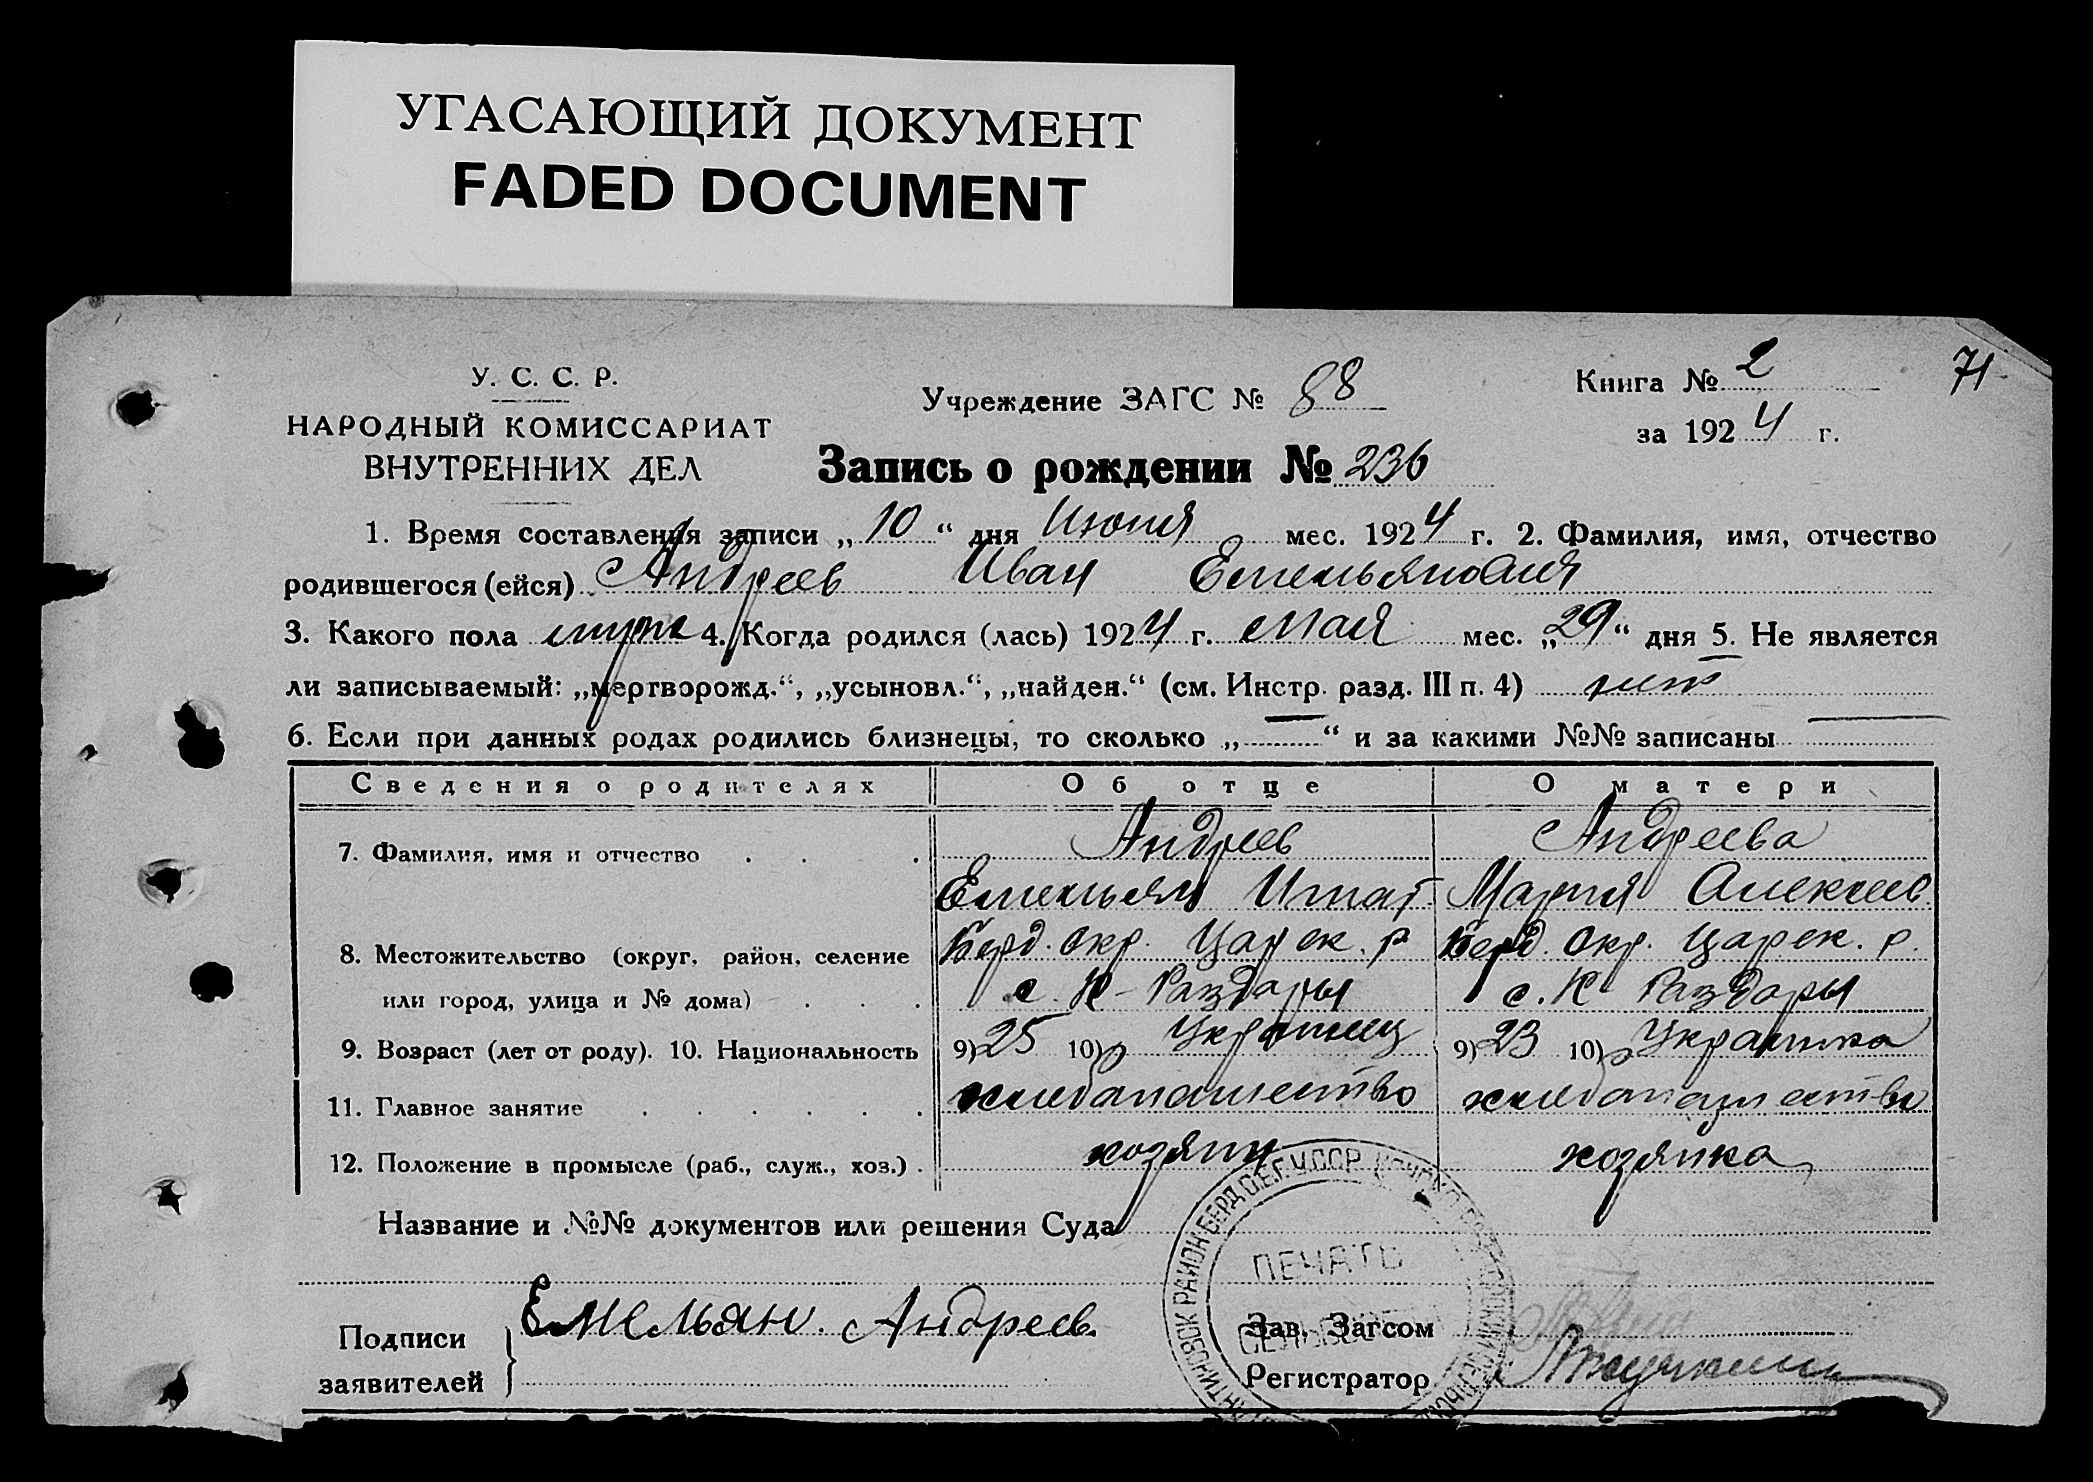 УГАСАЮЩИЙ ДОКУМЕНТ
FADED DOCUMENT
У. С. С. Р.
НАРОДНЫЙ КОМИССАРИАТ
ВНУТРЕННИХ ДЕЛ
Учреждение ЗАГС № 88
Книга № 2
71
за 1924 г.
Запись о рождении № 236
1. Время составления записи „10“ дня Июня мес. 1924 г. 2. Фамилия, имя, отчество
родившегося (ейся) Андреев Иван Емельянович
3. Какого пола муж 4. Когда родился (лась) 1924 г. Мая мес. „29“ дня 5. Не является
ли записываемый: „мертворожд.“, „усыновл.“, „найден.“ (см. Инстр. разд. III п. 4) нет
6. Если при данных родах родились близнецы, то сколько „—“ и за какими №№ записаны —
Сведения о родителях Об отце О матери
7. Фамилия, имя и отчество Андреев Андреева
Емельян Игнат Мария Алексеев
8. Местожительство (округ, район, селение Берд. окр. Царек. р Берд. Окр. Царек. р.
или город, улица и № дома) с. К-Раздоры с. К-Раздоры
9. Возраст (лет от роду). 10. Национальность 9) 25 10) Украинец 9) 23 10) Украинка
11. Главное занятие хлебопашество хлебопашество
12. Положение в промысле (раб., служ., хоз.) хозяин хозяйка
Название и №№ документов или решения Суда
ПЕЧАТЬ
Подписи
заявителей
Емельян. Андреев.
Зав. Загсом
Регистратор